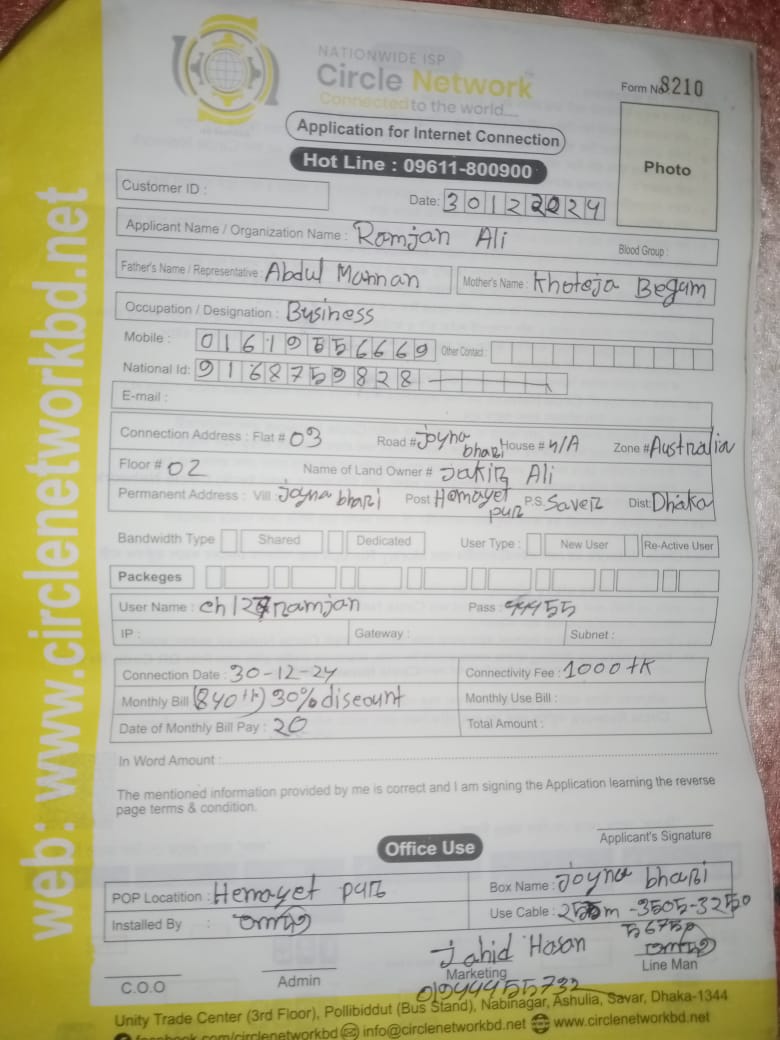 NATIONWIDE ISP
Circle Network
Connected to the world....
Form No 8210
Application for Internet Connection
Hot Line : 09611-800900
Photo
Customer ID :
Date: 30122024
Applicant Name / Organization Name : Ramjan Ali
Blood Group :
Father's Name / Representative : Abdul Mannan
Mother's Name : Khoteja Begum
Occupation / Designation : Business
Mobile : 01619556669 Other Contact :
National Id: 9168759828
E-mail :
Connection Address : Flat # 03 Road # Joyna bhari House # n/A Zone # Australia
Floor # 02 Name of Land Owner # Jakir Ali
Permanent Address : Vill : Joyna bhari Post Hemayet pur P.S. Saver Dist: Dhaka
Bandwidth Type Shared Dedicated User Type : New User Re-Active User
Packeges
User Name : ch127ramjan Pass : 4455
IP : Gateway : Subnet :
Connection Date : 30-12-24 Connectivity Fee : 1000 tk
Monthly Bill (840 tk) 30% discount Monthly Use Bill :
Date of Monthly Bill Pay : 20 Total Amount :
In Word Amount :
The mentioned information provided by me is correct and I am signing the Application learning the reverse
page terms & condition.
Applicant's Signature
Office Use
POP Locatition : Hemayet pur Box Name : Joyna bhari
Installed By : Use Cable : m -3505-3250
Jahid Hasan
C.O.O Admin Marketing Line Man
01944455732
Unity Trade Center (3rd Floor), Pollibiddut (Bus Stand), Nabinagar, Ashulia, Savar, Dhaka-1344
facebook.com/circlenetworkbd info@circlenetworkbd.net www.circlenetworkbd.net
web: www.circlenetworkbd.net